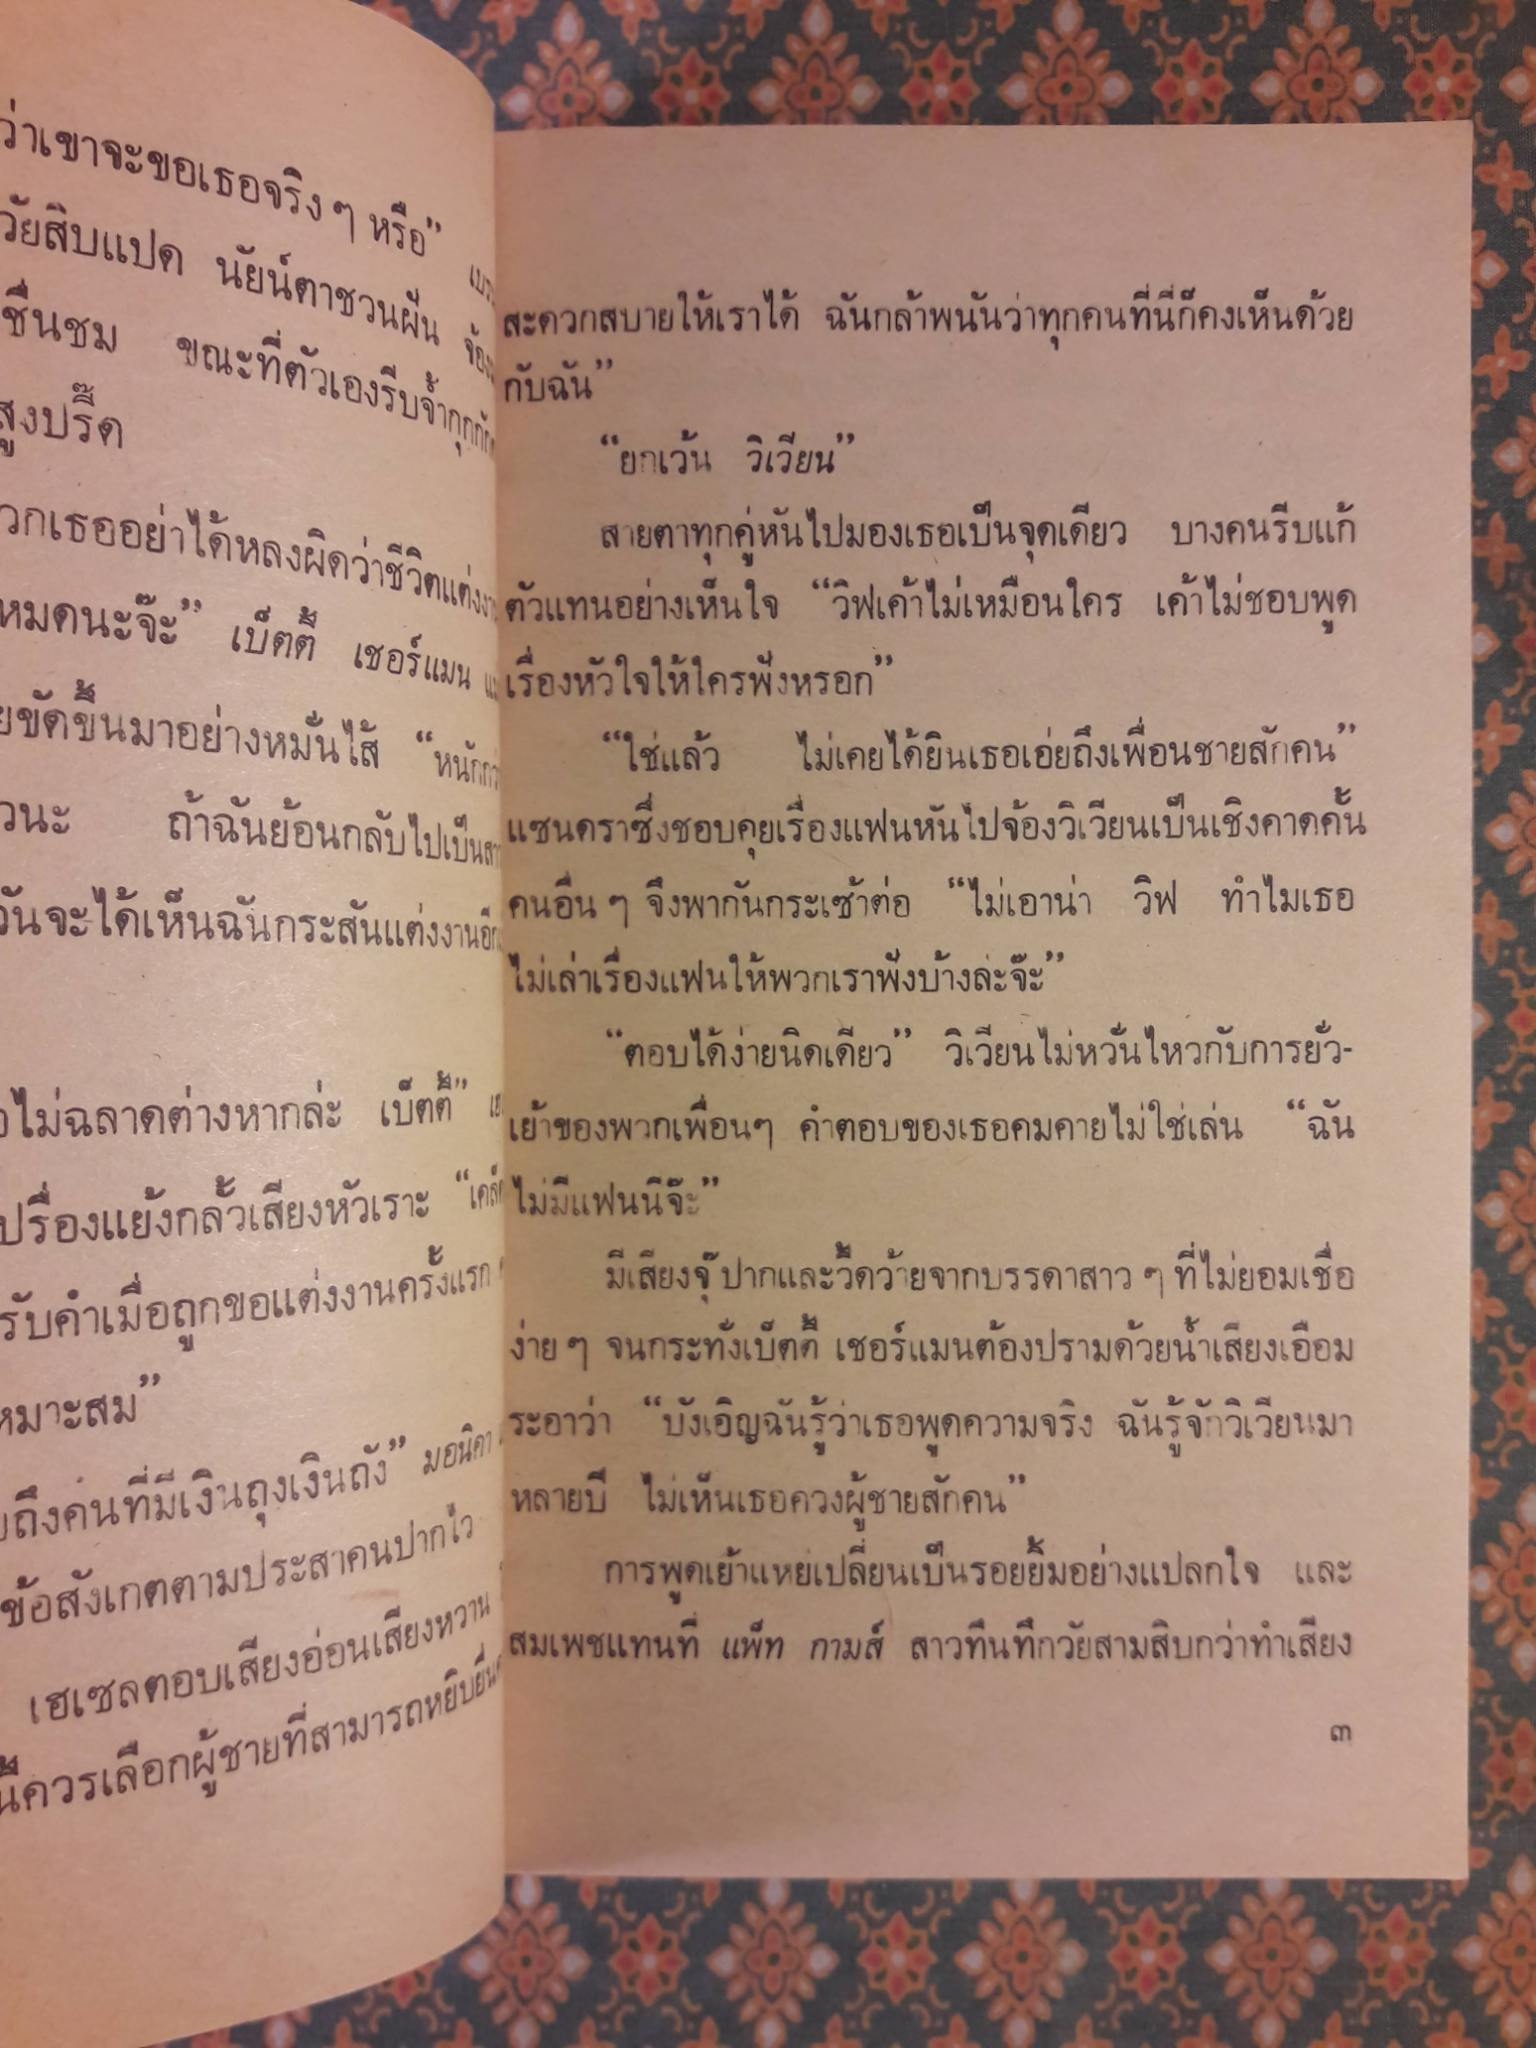 ว่าเขาจะขอเธอจริง ๆ หรือ”
วัยสิบแปด นัยน์ตาชวนฝัน
ชื่นชม ขณะที่ตัวเองรีบจ้ำ
สูงปรี๊ด
วกเธออย่าได้หลงผิดว่าชีวิต
หมดนะจ๊ะ” เบ็ตตี้ เชอร์แมน
ขัดขึ้นมาอย่างหมั่นไส้
วนะ ถ้าฉันย้อนกลับไปเป็น
วันจะได้เห็นฉันกระสันแต่งงานอีก
ไม่ฉลาดต่างหากล่ะ เบ็ตตี้”
ปรื่องแย้งกลั้วเสียงหัวเราะ
รับคำเมื่อถูกขอแต่งงานครั้งแรก
หมาะสม”
ถึงคนที่มีเงินถุงเงินถัง” มอนิคา
ข้อสังเกตตามประสาคนปากไว
เฮเซลตอบเสียงอ่อนเสียงหวาน
นี้ควรเลือกผู้ชายที่สามารถหยิบยื่น
สะดวกสบายให้เราได้ ฉันกล้าพนันว่าทุกคนที่นี่ก็คงเห็นด้วย
กับฉัน”
“ยกเว้น วิเวียน”
สายตาทุกคู่หันไปมองเธอเป็นจุดเดียว บางคนรีบแก้
ตัวแทนอย่างเห็นใจ “วิฟเค้าไม่เหมือนใคร เค้าไม่ชอบพูด
เรื่องหัวใจให้ใครฟังหรอก”
“ใช่แล้ว ไม่เคยได้ยินเธอเอ่ยถึงเพื่อนชายสักคน”
แซนดราซึ่งชอบคุยเรื่องแฟนหันไปจ้องวิเวียนเป็นเชิงคาดคั้น
คนอื่น ๆ จึงพากันกระเซ้าต่อ “ไม่เอาน่า วิฟ ทำไมเธอ
ไม่เล่าเรื่องแฟนให้พวกเราฟังบ้างล่ะจ๊ะ”
“ตอบได้ง่ายนิดเดียว” วิเวียนไม่หวั่นไหวกับการยั่ว-
เย้าของพวกเพื่อนๆ คำตอบของเธอคมคายไม่ใช่เล่น “ฉัน
ไม่มีแฟนนี่จ๊ะ”
มีเสียงจุ๊ปากและวี้ดว้ายจากบรรดาสาว ๆ ที่ไม่ยอมเชื่อ
ง่าย ๆ จนกระทั่งเบ็ตตี้ เชอร์แมนต้องปรามด้วยน้ำเสียงเอือม
ระอาว่า “บังเอิญฉันรู้ว่าเธอพูดความจริง ฉันรู้จักวิเวียนมา
หลายปี ไม่เห็นเธอควงผู้ชายสักคน”
การพูดเย้าแหย่เปลี่ยนเป็นรอยยิ้มอย่างแปลกใจ และ
สมเพชแทนที่ แพ็ท กามส์ สาวทึนทึกวัยสามสิบกว่าทำเสียง
๓